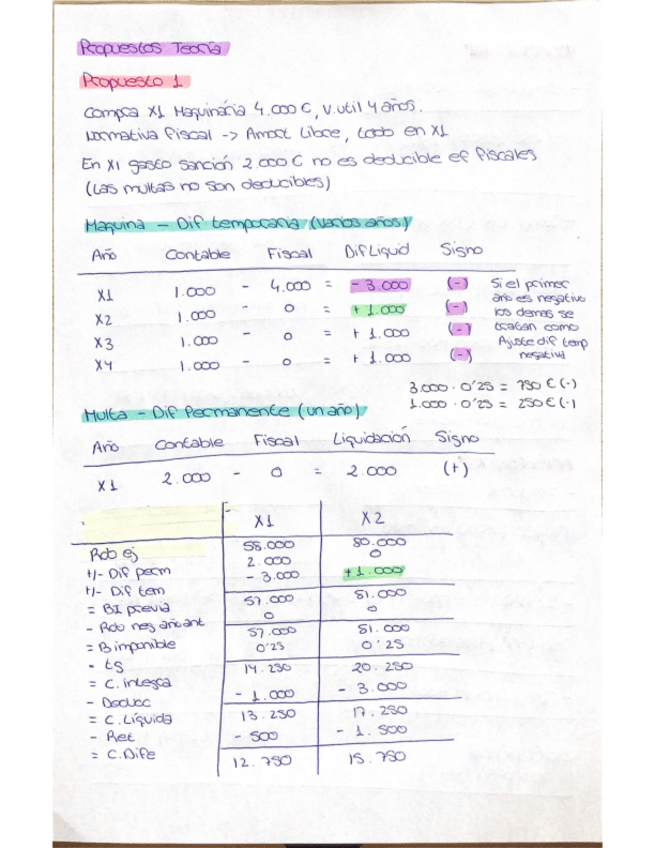 Propuestos Teoría
Propuesto 1
Compra X1 Maquinaria 4.000 €, V.util 4 años.
Normativa Fiscal -> Amort Libre, todo en X1
En X1 gasto sanción 2 000 € no es deducible ef fiscales
(Las multas no son deducibles)
Maquina — Dif temporaria (Varios años)
Año Contable Fiscal Dif Liquid Signo
X1 1.000 - 4.000 = - 3.000 (-)
X2 1.000 - 0 = + 1.000 (-)
X3 1.000 - 0 = + 1.000 (-)
X4 1.000 - 0 = + 1.000 (-)
Si el primer
año es negativo
los demas se
tratan como
Ajuste dif temp
negativa
3.000 · 0'25 = 750 € (-)
1.000 · 0'25 = 250 € (-)
Multa — Dif Permanente (un año)
Año Contable Fiscal Liquidación Signo
X1 2.000 - 0 = 2.000 (+)
X1 X2
Rdo ej 58.000 80.000
+/- Dif perm 2.000 0
+/- Dif tem - 3.000 +1.000
= BI previa 57.000 81.000
- Rdo neg añoant 0 0
= B imponible 57.000 81.000
· tg 0'25 0'25
= C. integra 14.250 20.250
- Deducc - 1.000 - 3.000
= C. Líquida 13.250 17.250
- Ret - 500 - 1.500
= C. Dife 12.750 15.750